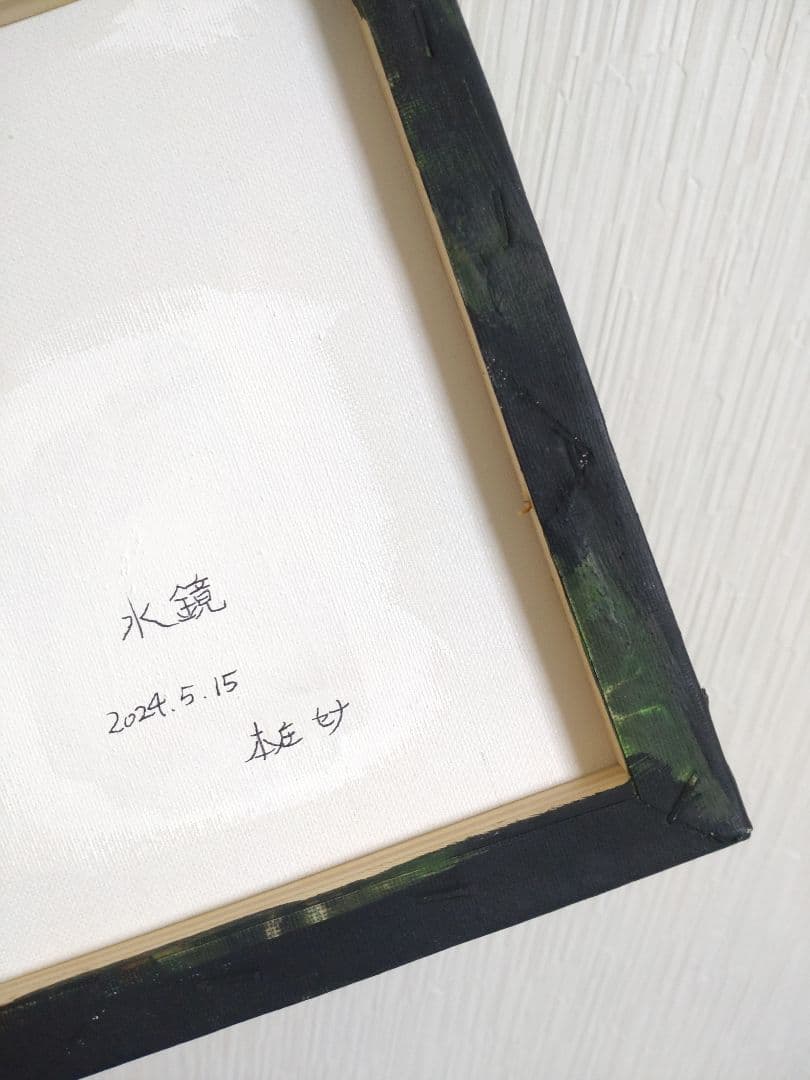 水鏡
2024.5.15
本庄 セナ